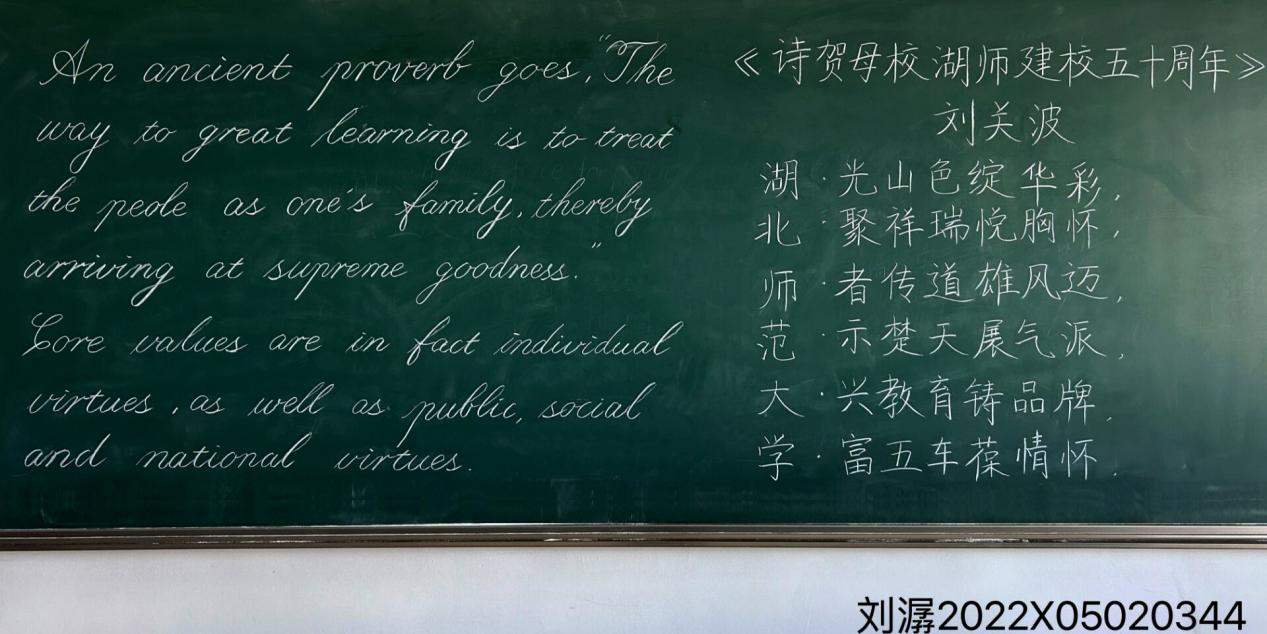 An ancient proverb goes, "The
way to great learning is to treat
the peole as one's family, thereby
arriving at supreme goodness."
Core values are in fact individual
virtues, as well as public, social
and national virtues.
《诗贺母校湖师建校五十周年》
刘关波
湖·光山色绽华彩,
北·聚祥瑞悦胸怀,
师·者传道雄风迈,
范·示楚天展气派,
大·兴教育铸品牌,
学·富五车葆情怀.
刘潺2022X05020344